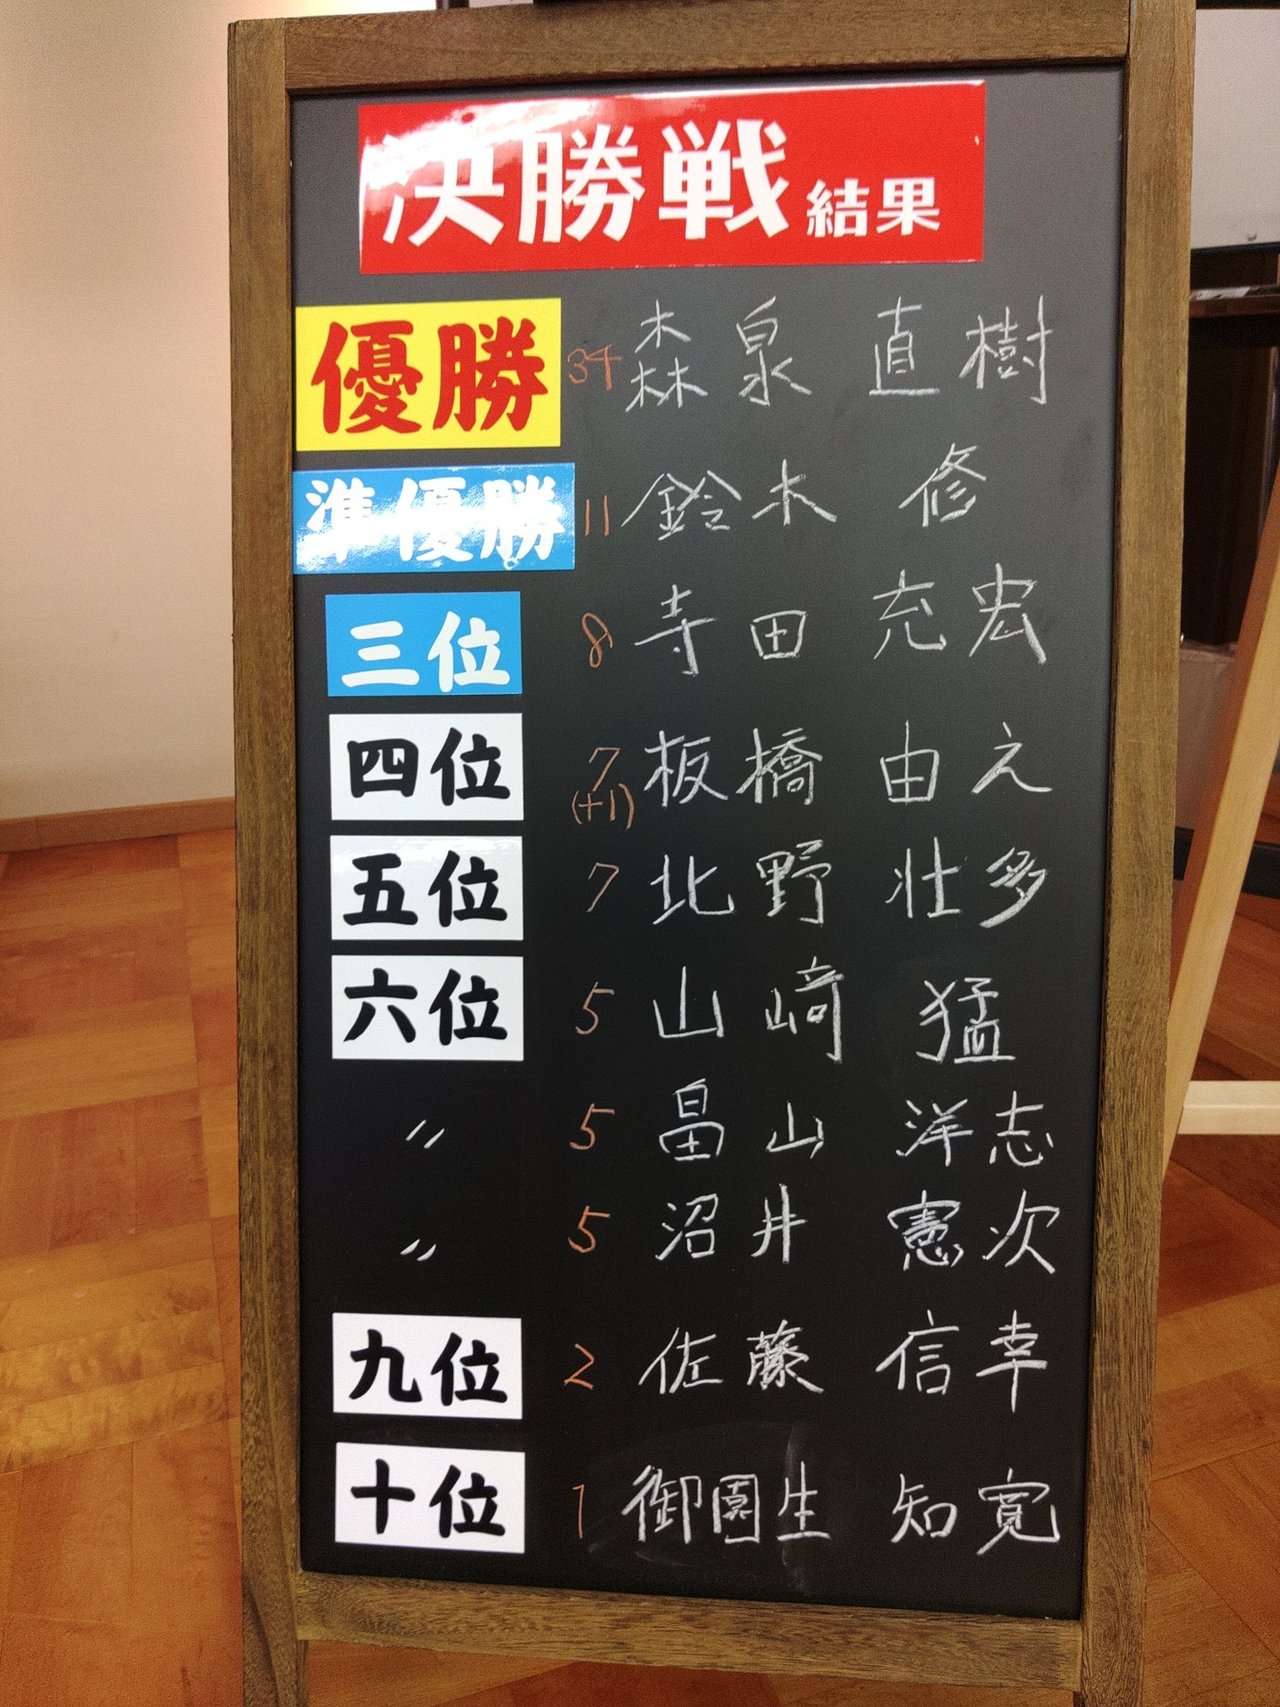 決勝戦 結果
優勝 34 森泉 直樹
準優勝 11 鈴木 修
三位 8 寺田 充宏
四位 7 (+1) 板橋 由え
五位 7 北野 壮多
六位 5 山﨑 猛
〃 5 畠山 洋志
〃 5 沼井 憲次
九位 2 佐藤 信幸
十位 1 御園生 知寛